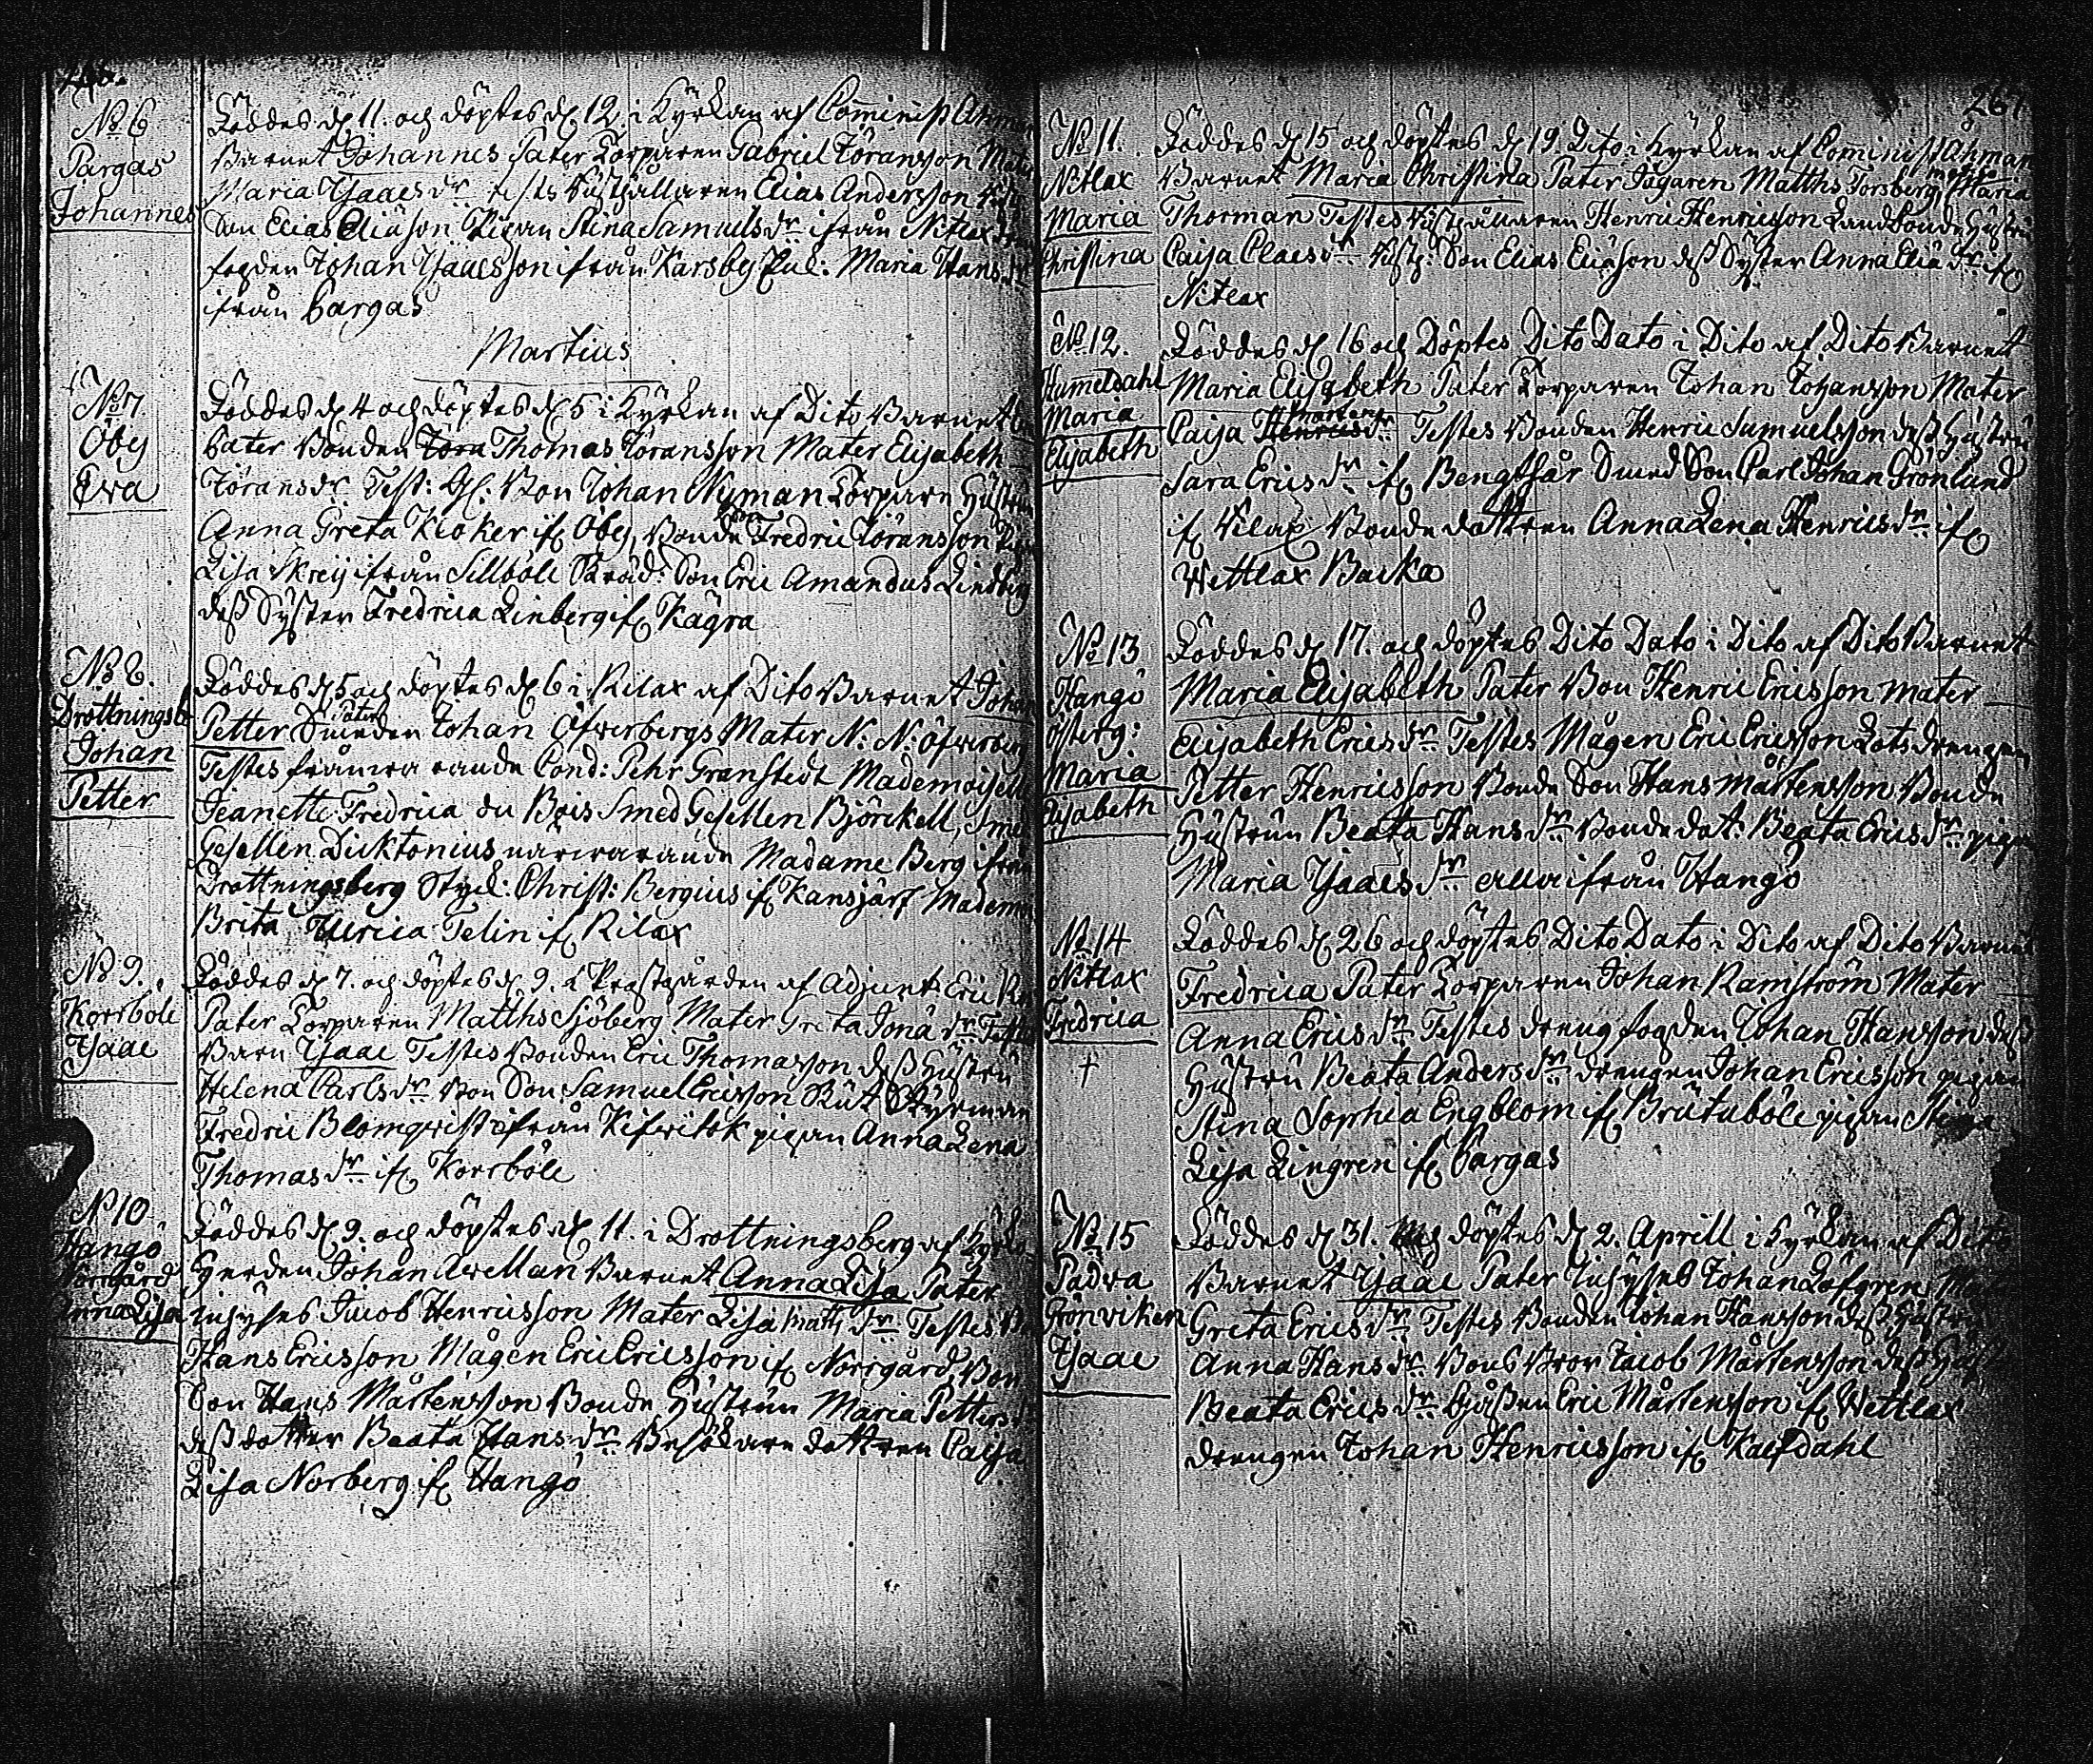 266.
No 6
Pargas
Johannes
Föddes d. 11. och döptes d. 12 i Kyrkan af Cominist Åhman
Barnet Johannes Pater Torparen Gabriel Jöransson Mater
Maria Isaacs dr testes Rusthållaren Elias Andersson
Son Elias Eliäson Pigan Stina Samuels dr ifrån Nitlax
fogden Johan Isaacsson ifrån Karsby Maria Hans dr
ifrån Pargas
Martius
No 7.
Öby
Eva
Föddes d. 4 och döptes d. 5 i Kyrkan af Dito Barnet
Pater Bonden Thomas Jöransson Mater Elisabeth
Jörans dr Test: Johan Nyman Torparn Hustrun
Anna Greta Kloker if. Öby, Bonde Son Fredric Jöransson
Lisa Skreij ifrån Sillböle Skräd: Son Eric Amandus Lindberg
dess Syster Fredrica Linberg if. Kägra
No 8.
Drottningsb
Johan
Petter
Föddes d. 5 och döptes d. 6 i Rilax af Dito Barnet Johan
Petter Pater Smeden Johan Öfwerbergs Mater N: N: Öfwerberg
Testes frånwarande Cond: Pehr Granstedt Mademoiselle
Jeanette Fredrica du Bois Smed Gesellen Björckell, Smed
Gesellen Dicktonius närwarande Madame Berg ifrån
Drottningsberg Christ: Bergius if. Kansjärf
Brita Ulrica Telin if. Rilax
No 9.
Korrbole
Isaac
Föddes d. 7. och döptes d. 9. i Prästgården af Adjunct Eric
Pater Torparen Matths Sjöberg Mater Greta Jonä dr
Barn Isaac Testes Bonden Eric Thomasson dess Hustru
Helena Carls dr Bon Son Samuel Ericsson Styrman
Fredric Blomqvist ifrån pigan Anna Lena
Thomas dr if. Korrböle
No 10
Hangö
Norrgård
Anna Lisa
Föddes d. 9. och döptes d. 11. i Drottningsberg af Kyrko
Herden Johan Awellan Barnet Anna Lisa Pater
inhyses Jacob Henricsson Mater Lisa Matts dr Testes
Hans Ericsson Mågen Eric Ericsson if. Norrgård, Bon
Son Hans Mårtensson Bonde Hustrun Maria Petters
dess dotter Beata Hans dr Besökare dottren Caisa
Lisa Norberg if. Hangö
267
No 11.
Nitlax
Maria
Christina
Föddes d. 15 och döptes d. 19. Dito i Kyrkan af Cominist Åhman
Barnet Maria Christina Pater Jägaren Matths Forsberg, mater Maria
Thorman Testes Rusthållaren Henric Henricsson Landbonde Hustru
Caisa Claes dr Rusth: Son Elias Eliäson dess Syster Anna Eliä dr if.
Nitlax
No 12.
Humeldahl
Maria
Elisabeth
Föddes d. 16 och Döptes Dito Dato i Dito af Dito Barnet
Maria Elisabeth Pater Torparen Johan Johansson Mater
Caisa Henrics Mårtens dr Testes Bonden Henric Samuelsson dess Hustru
Sara Erics dr if. Bengtsår Smed Son Carl Johan Grönlund
if. Bonde dottren Anna Lena Henrics dr if.
Wettlax Backa
No 13
Hangö
österg:
Maria
Elisabeth
Föddes d. 17. och döptes Dito Dato i Dito af Dito Barnet
Maria Elisabeth Pater Bon Henric Ericsson mater
Elisabeth Erics dr Testes Mågen Eric Ericsson Lots drengen
Petter Henricsson Bonde Son Hans Mårtensson Bonde
Hustrun Beata Hans dr Bonde dot: Beata Erics dr pigan
Maria Isaacs dr alla ifrån Hangö
No 14
Nitlax
Fredrica
†
Föddes d. 26 och döptes Dito Dato i Dito af Dito Barnet
Fredrica Pater Torparen Johan Ramström Mater
Anna Erics dr Testes dreng fogden Johan Hansson dess
Hustru Beata Anders dr drengen Johan Ericsson pigan
Stina Sophia Engblom if. Brutuböle pigan Stina
Lisa Lingren if. Pargas
No 15
Padva
Grönviken
Isaac
Föddes d. 31. döptes d. 2. Aprill i Kyrkan af Dito
Barnet Isaac Pater Inhyses Johan Löfgren
Greta Erics dr Testes Bonden Johan Hansson dess Hustru
Anna Hans dr Bons Bror Jacob Mårtensson dess
Beata Erics dr Eric Mårtensson if. Wettlax
drengen Johan Henricsson if. Kalfdahl